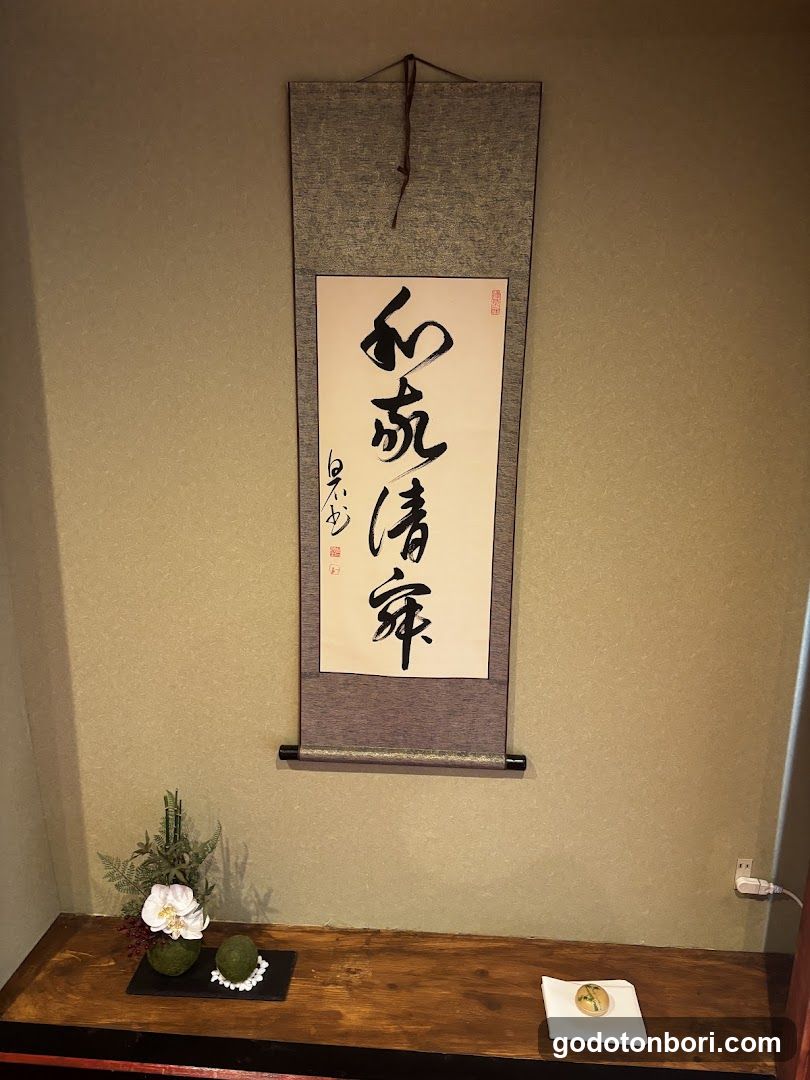 和敬清寂
godotonbori.com